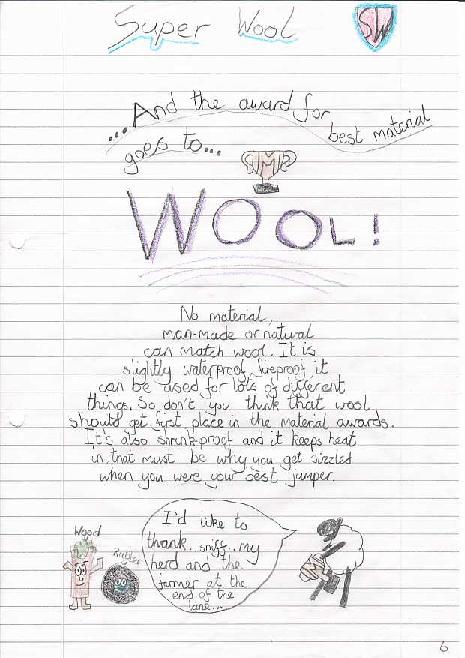 Super Wool
SW
...And the award for
best material
goes to...
WOOL!
No material,
man-made or natural
can match wool. It is
slightly waterproof, fireproof, it
can be used for lots of different
things. So don't you think that wool
should get first place in the material awards.
It's also shrink-proof and it keeps heat
in, that must be why you get sizzled
when you were your best jumper.
Wood
Rubber
I'd like to
thank..sniff..my
herd and the
farmer at the
end of the
lane...
6